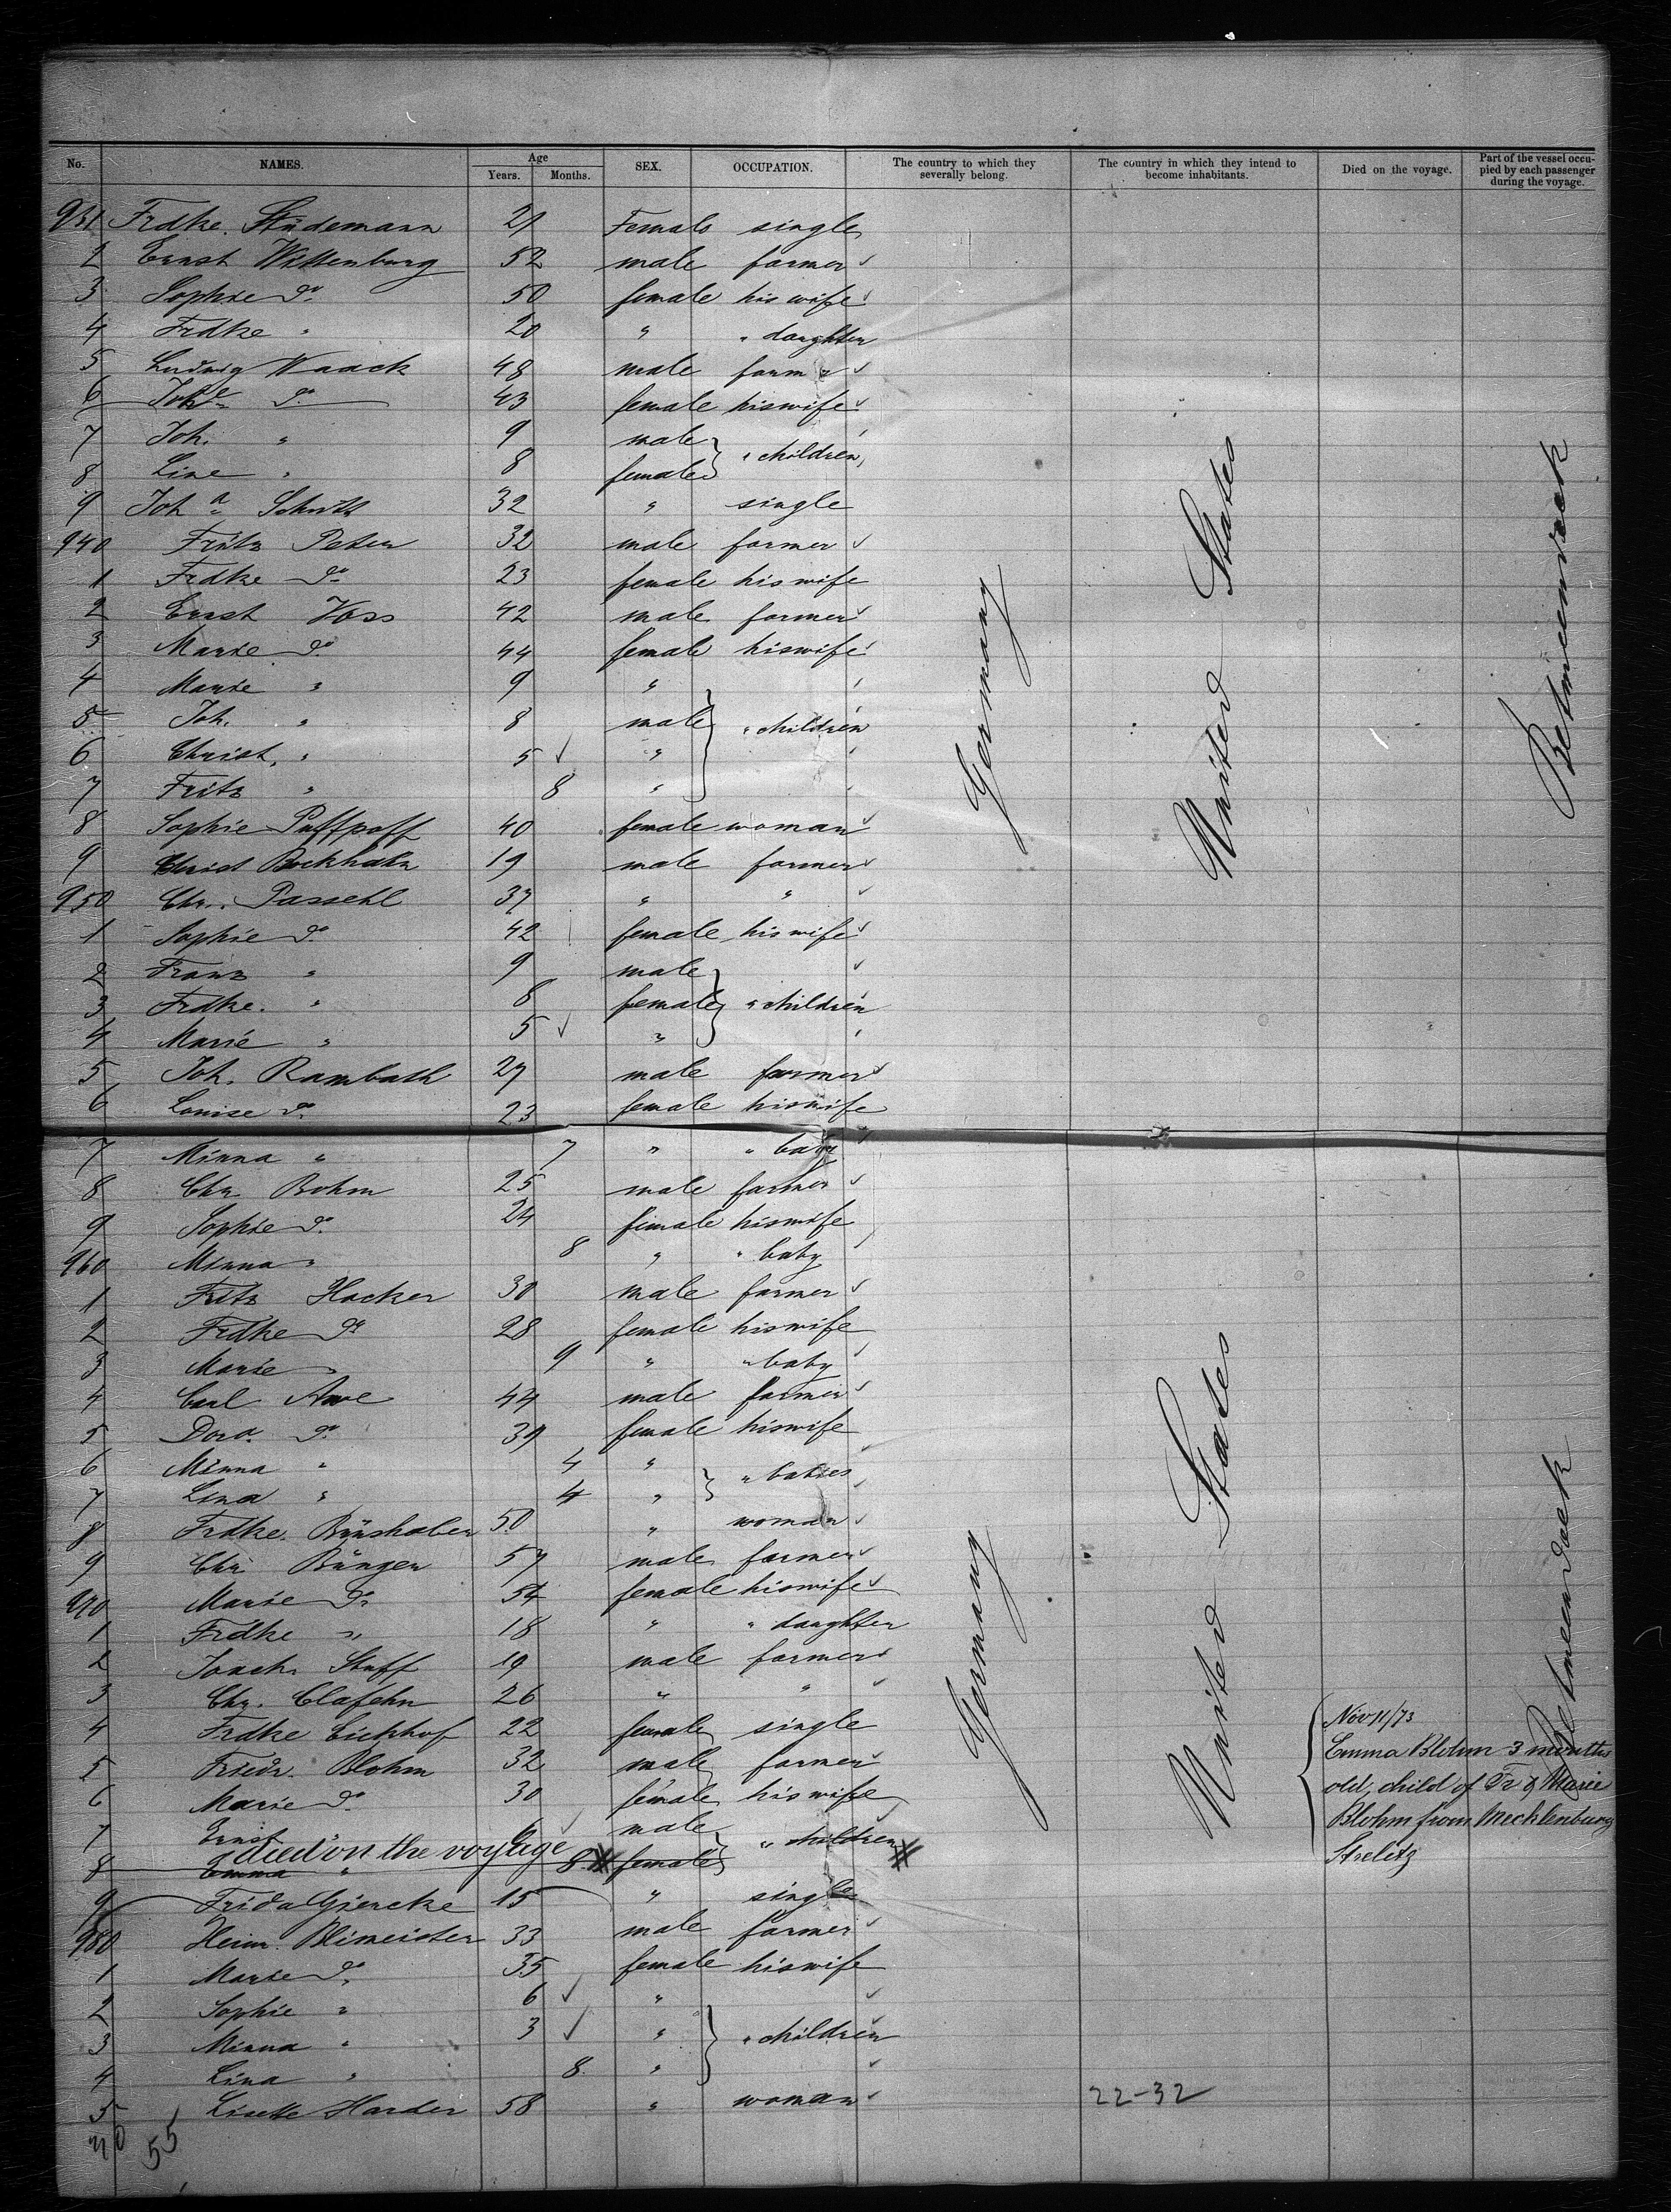 No. NAMES. Age Years. Months. SEX. OCCUPATION. The country to which they severally belong. The country in which they intend to become inhabitants. Died on the voyage. Part of the vessel occupied by each passenger during the voyage.
931 Frdke. Stüdemann 21 Female single
2 Ernst Wittenburg 52 male farmer
3 Sophie do 50 female his wife
4 Frdke " 20 " " daughter
5 Ludwig Waack 48 male farmer
6 Johe do 43 female his wife
7 Joh. " 9 male
" children
8 Line " 8 female
9 Joha Schutt 32 " single
940 Fritz Peters 32 male farmer
1 Frdke do 23 female his wife
2 Ernst Voss 42 male farmer
3 Marie do 44 female his wife
4 Marie " 9 "
5 Joh. " 8 male " children
6 Christ. " 5 "
7 Fritz " 8 "
8 Sophie Puffpaff 40 female woman
9 Christ Bockhahn 19 male farmer
950 Chr. Passehl 37 " "
1 Sophie do 42 female his wife
2 Franz " 9 male
3 Frdke. " 8 female " children
4 Marie " 5 "
5 Joh. Rambath 27 male farmer
6 Louise do 23 female his wife
7 Minna " 7 " " baby
8 Chr Bohm 25 male farmer
9 Sophie do 24 female his wife
960 Minna " 8 " " baby
1 Fritz Hacker 30 male farmer
2 Frdke do 28 female his wife
3 Marie " 9 " " baby
4 Carl Awe 44 male farmer
5 Dora do 39 female his wife
6 Minna " 4 "
" babies
7 Lina " 4 "
8 Frdke. 50 " woman
9 Chr Bünger 57 male farmer
970 Marie do 54 female his wife
1 Frdke " 18 " " daughter
2 Joach. Staff 19 male farmer
3 Chr. Clafehn 26 " "
4 Frdke Eickhof 22 female single
5 Friedr. Blohm 32 male farmer
6 Marie do 30 female his wife
7 Ernst " 6 male
" children
died on the voyage
8 Emma " 8 female
9 Frida Giencke 15 " single
980 Heinr. Blimeister 33 male farmer
1 Marie do 35 female his wife
2 Sophie " 6 "
3 Minna " 3 " " children
4 Lina " 8 "
5 Lisette Harder 58 " woman
55
Germany
United States
Betweendeck
Germany
United States
Betweendeck
Nov 11/73
Emma Blohm 3 months
old, child of Fr & Marie
Blohm from Mecklenburg
Strelitz
22-32